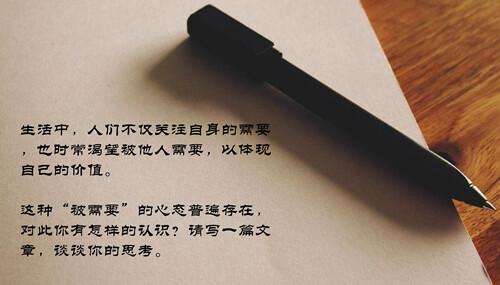 生活中，人们不仅关注自身的需要
，也时常渴望被他人需要，以体现
自己的价值。
这种“被需要”的心态普遍存在，
对此你有怎样的认识？请写一篇文
章，谈谈你的思考。